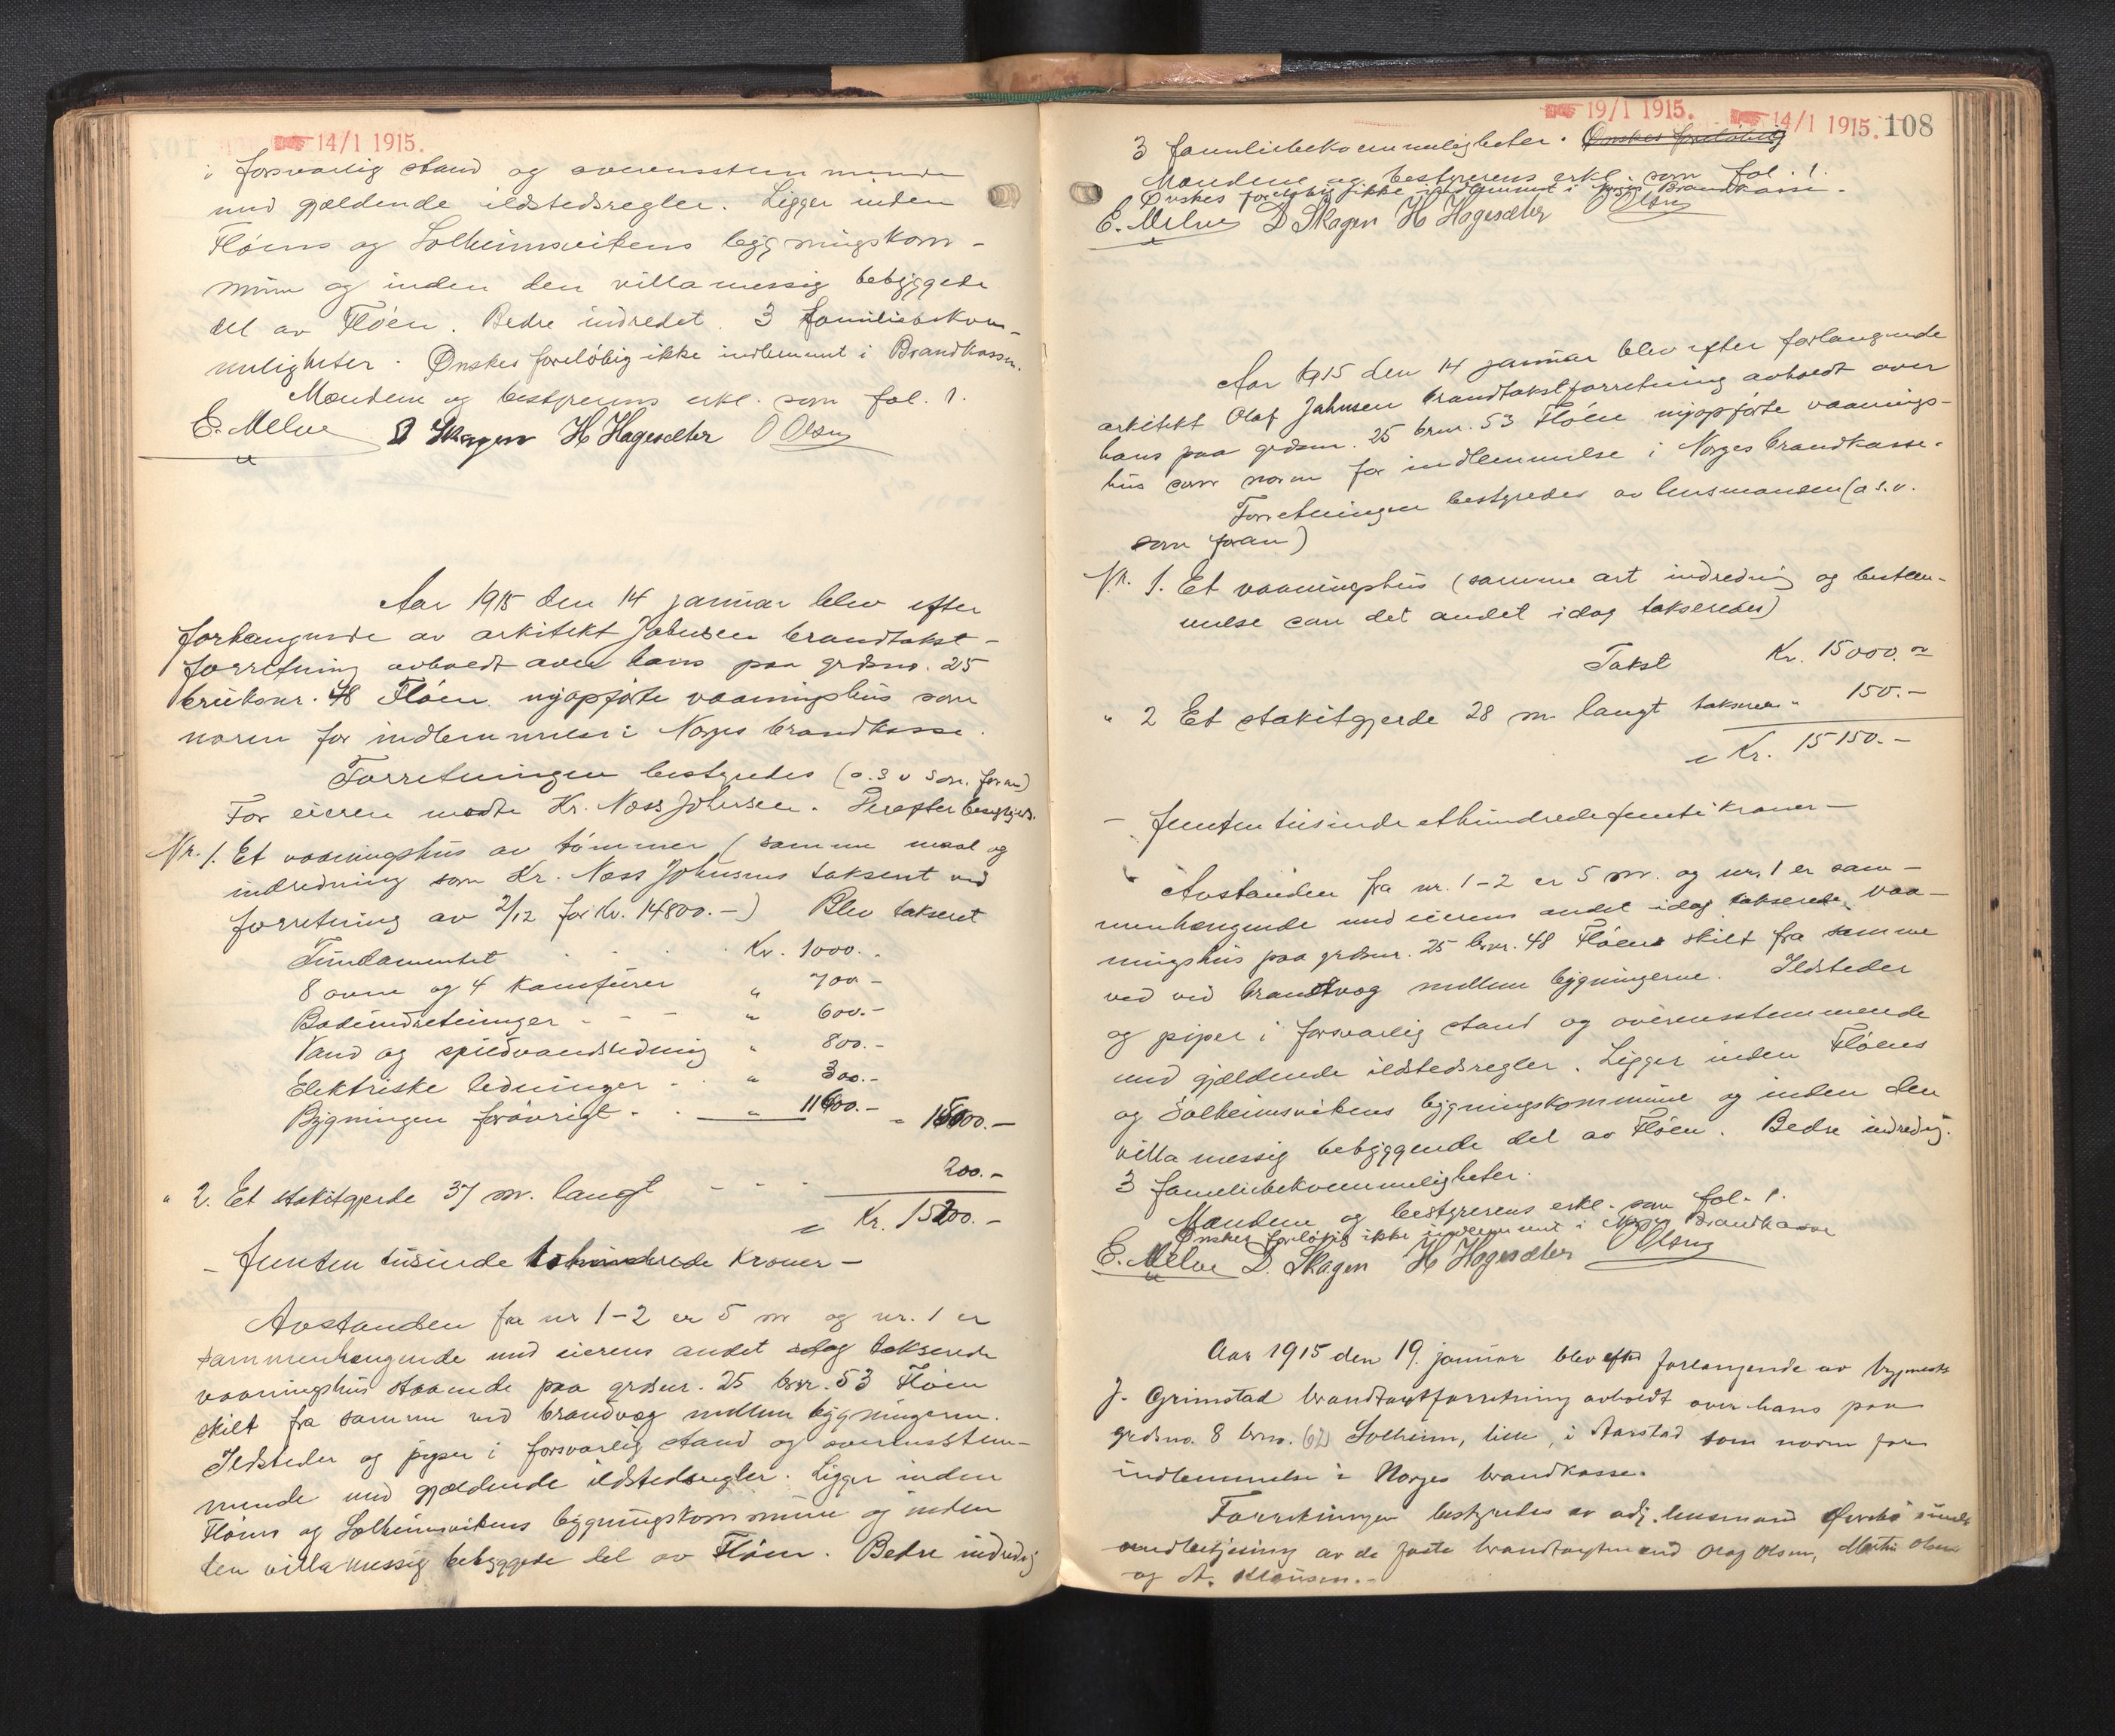 14/1 1915.
i forsvarlig stand og overensstemmende
med gjældende ildstedsregler. Ligger inden
Fløens og Solheimsvikens bygningskom-
mune og inden den villamessig bebyggede
del av Fløen. Bedre indredet. 3 familiebekvem-
meligheter. Ønskes foreløbig ikke indlemmet i Brandkassen.
Mændene og bestyrerens erkl. som fol. 1.
E. Melve D Skagen H Hagesæter O Olsen
Aar 1915 den 14 januar blev efter
forlangende av arkitekt Johnsen brandtakst-
forretning avholdt over hans paa grdsno. 25
bruksnr. 48 Fløen nyopførte vaaningshus som
norm for indlemmelse i Norges brandkasse.
Forretningen bestyredes (o.s.v som foran)
For eieren møtte Kr. Ness Johnsen. Derefter besigtiget.
Nr. 1. Et vaaningshus av tømmer (samme maal og
indredning som Kr. Ness Johnsens taksert ved
forretning av 2/12 for Kr. 14800.-) Blev takseret
Fundamentet . . . . Kr. 1000..
8 ovne og 4 komfurer " 700 -
Badeindretninger - - - " 600.-
Vand og spildvandsledning " 800.-
Elektriske ledninger - . " 300.-
Bygningen forøvrigt - . " 11600.- - 15000.-
" 2. Et stakitgjerde 37 m. langt - - - 200.-
Kr. 15200.-
- Femten tusinde tohundrede kroner -
Avstanden fra nr 1-2 er 5 m og nr. 1 er
sammenhengende med eierens andet idag takserede
vaaningshus staaende paa grdsnr. 25 brnr. 53 Fløen
skilt fra samme ved brandvæg mellem bygningerne.
Ildsteder og piper i forsvarlig stand og overensstem-
mende med gjældende ildstedsregler. Ligger inden
Fløens og Solheimsvikens bygningskommune og inden
den villamessig bebyggede del av Fløen. Bedre indredning
19/1 1915. 14/1 1915. 108
3 familiebekvemmeligheter. Ønskes foreløbig
Mændene og bestyrerens erkl. som fol. 1.
Ønskes foreløbig ikke indlemmet i Norges Brandkasse.
E. Melve D Skagen H Hagesæter O Olsen
Aar 1915 den 14 januar blev efter forlangende
arkitekt Olaf Johnsen brandtakstforretning avholdt over
hans paa grdsnr. 25 brnr. 53 Fløen nyopførte vaanings-
hus som norm for indlemmelse i Norges brandkasse.
Forretningen bestyredes av lensmanden (o.s.v.
som foran)
Nr. 1. Et vaaningshus (samme art indredning og bestem-
melse som det andet idag takseredes)
Takst Kr. 15000.00
" 2 Et stakitgjerde 28 m langt takseres " 150.-
Kr. 15150.-
- Femten tusinde ethundrede femti kroner -
Avstanden fra nr. 1-2 er 5 m. og nr. 1 er sam-
menhengende med eierens andet idag takserede vaa-
ningshus paa grdsnr. 25 brnr. 48 Fløen skilt fra samme
ved ved brandvæg mellem bygningerne. Ildsteder
og piper i forsvarlig stand og overensstemmende
med gjældende ildstedsregler. Ligger inden Fløens
og Solheimsvikens bygningskommune og inden den
villamessig bebyggende del av Fløen. Bedre indredning.
3 familiebekvemmeligheter.
Mændene og bestyrerens erkl. som fol. 1.
Ønskes foreløbig ikke indlemmet i Norges Brandkasse
E. Melve D. Skagen H Hagesæter O Olsen
Aar 1915 den 19. januar blev efter forlangende av bygmester
J. Grimstad brandtaxtforretning avholdt over hans paa
grdsno. 8 brno. 62 Solheim, lille, i Aarstad som norm for
indlemmelse i Norges brandkasse.
Forretningen bestyredes av adj. lensmand under
medbetjening av de faste brandtaxtmænd Olaf Olsen, Martin Olsen
og A. Klausen.-